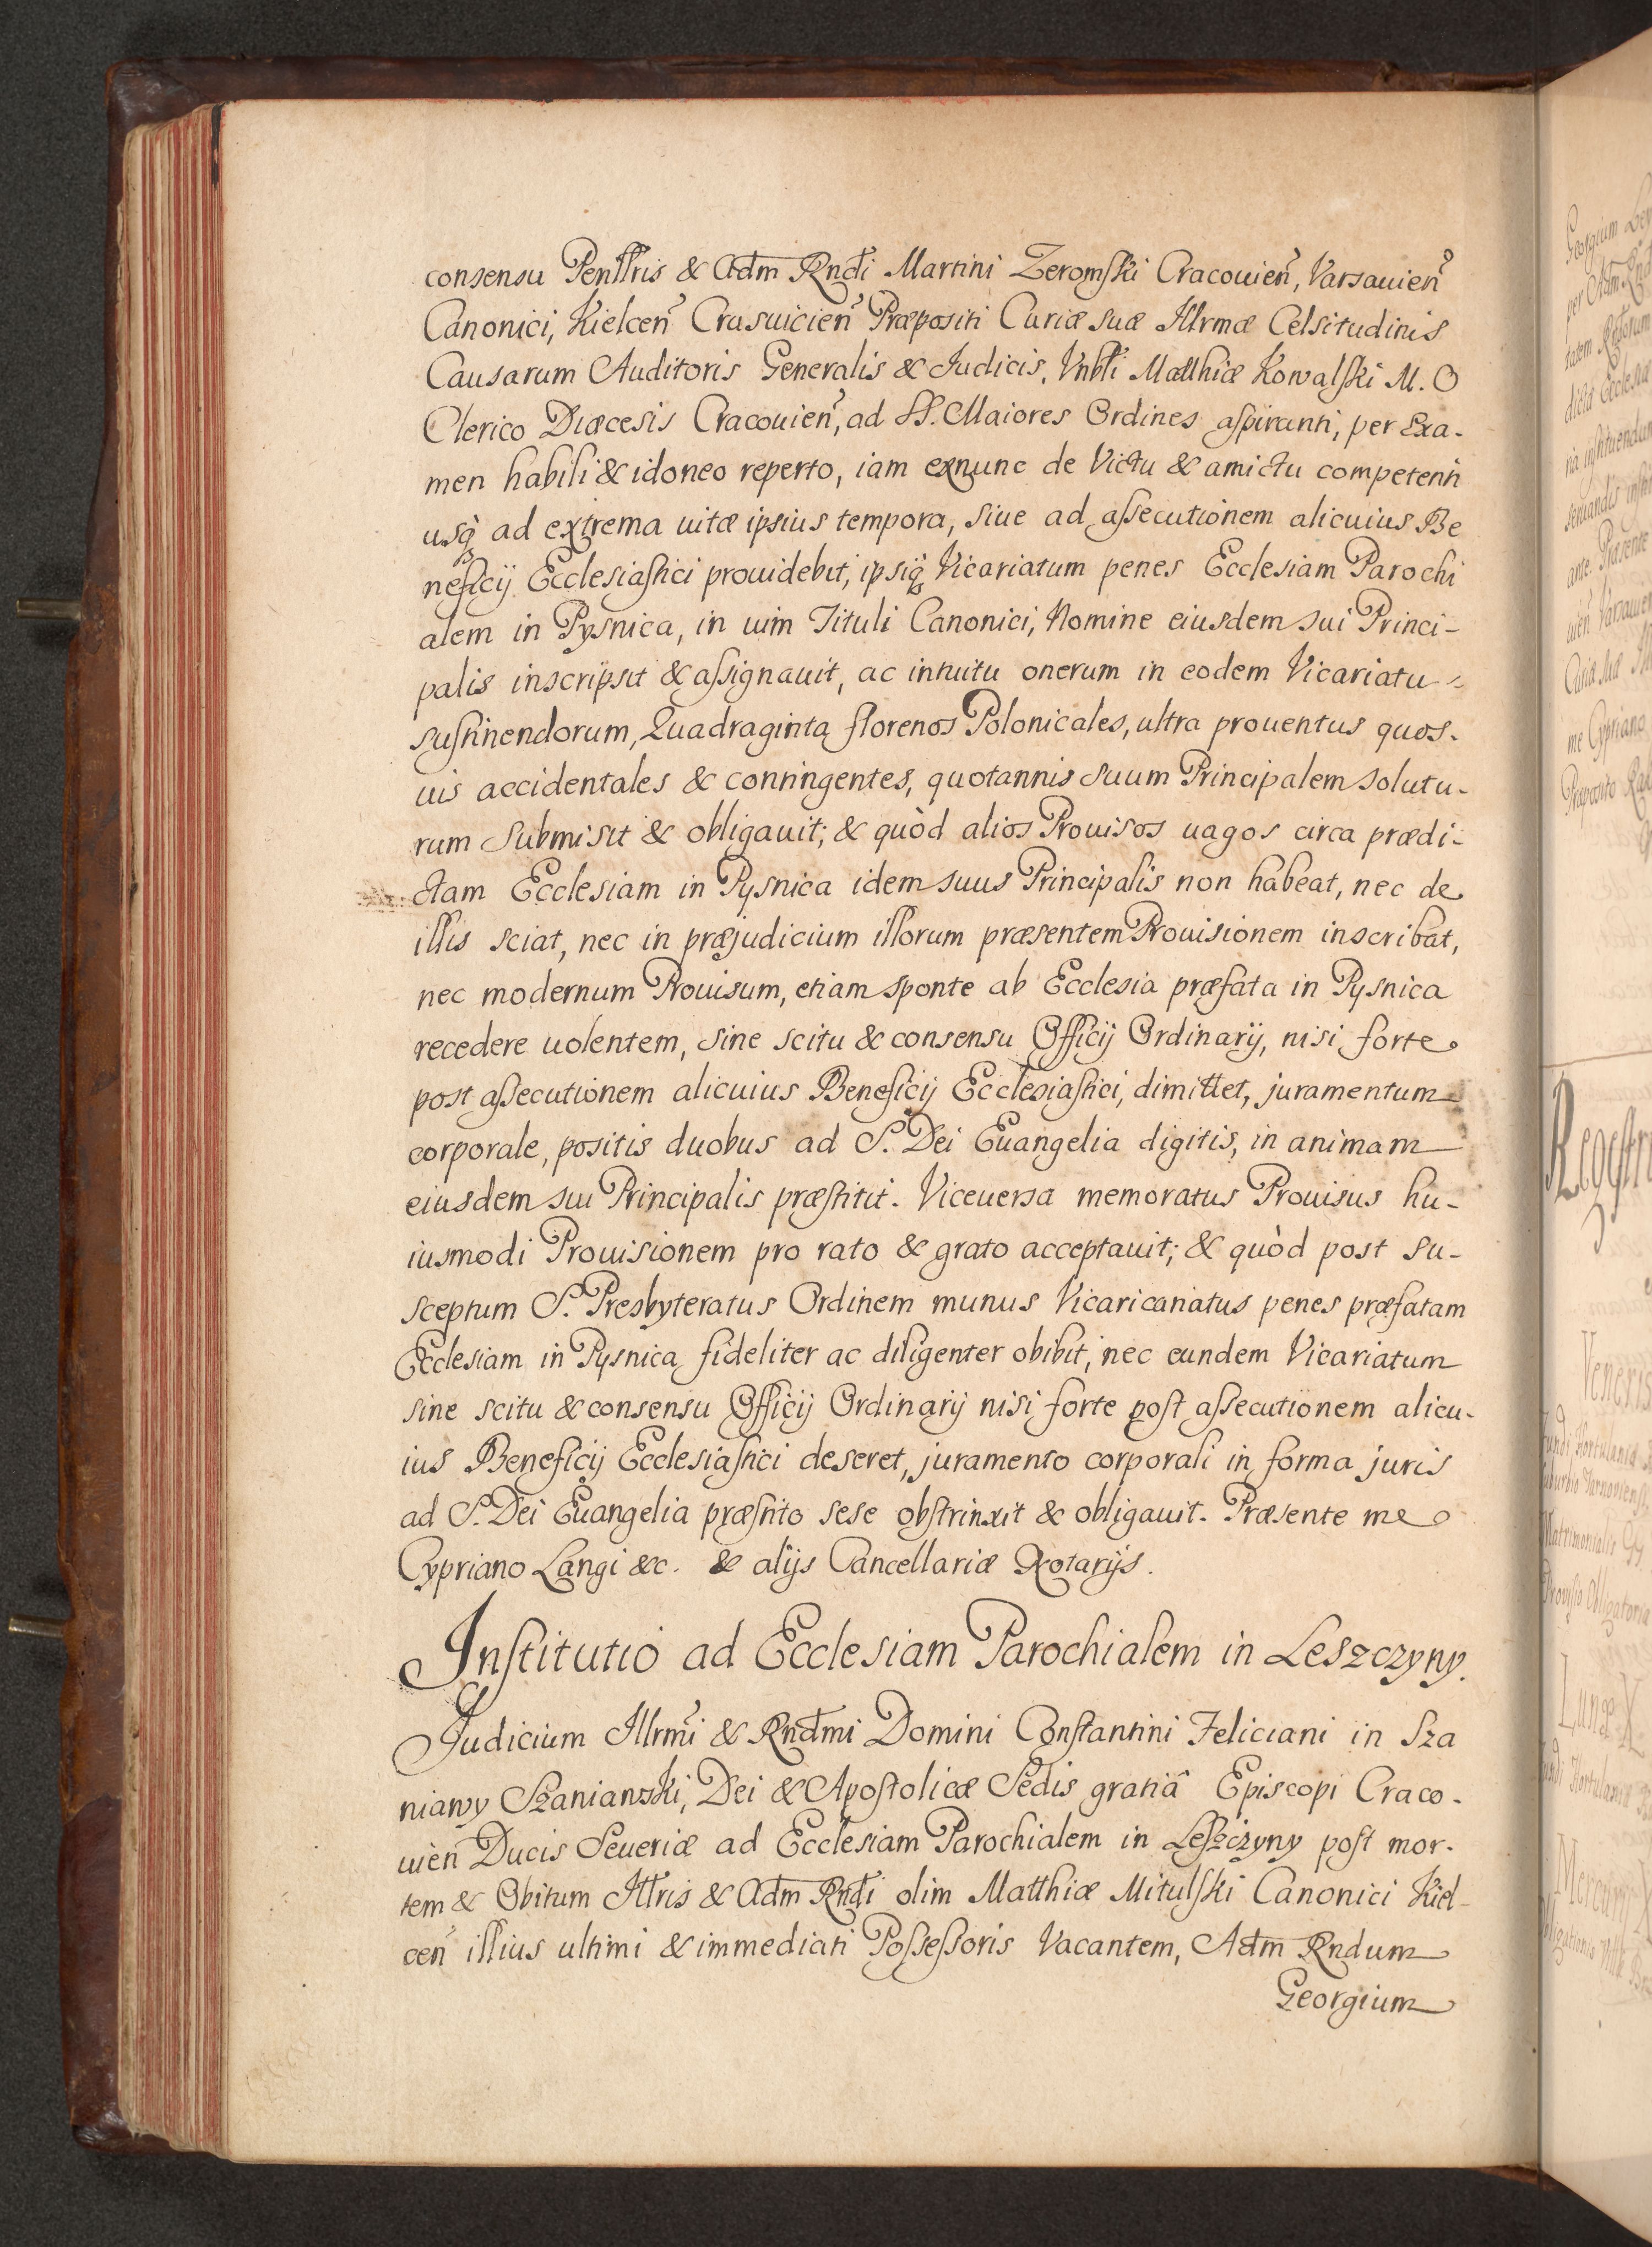 consensu Penllris & Adm Rndi Martini Zeromſki Cracouien, Varsauien
Canonici, Kielcen Crusuicien Præpositi Curiæ suæ Illrmæ Celsitudinis
Causarum Auditoris Generalis & Judicis, Vnbli Matthiæ Kowalſki M. O
Clerico Diæcesis Cracouien, ad SS. Maiores Ordines aſpiranti, per Exa-
men habili & idoneo reperto, iam exnunc de Victu & amictu competenti
usq ad extrema uitæ ipsius tempora, siue ad aſsecutionem alicuius Be
neficij Ecclesiaſtici prouidebit, ipsiq Vicariatum penes Ecclesiam Parochi
alem in Pysnica, in uim Tituli Canonici, Nomine eiusdem sui Princi-
palis inscripsit & aſsignauit, ac intuitu onerum in eodem Vicariatu
suſtinendorum, Quadraginta florenos Polonicales, ultra prouentus quos-
uis accidentales & contingentes, quotannis suum Principalem solutu-
rum submisit & obligauit; & quòd alios Prouisos uagos circa prædi-
ctam Ecclesiam in Pysnica idem suus Principalis non habeat, nec de
illis sciat, nec in præjudicium illorum præsentem Prouisionem inscribat,
nec modernum Prouisum, etiam sponte ab Ecclesia præfata in Pysnica
recedere uolentem, sine scitu & consensu Officij Ordinarij, nisi forte
post aſsecutionem alicuius Beneficij Ecclesiaſtici, dimittet, juramentum
corporale, positis duobus ad S. Dei Euangelia digitis, in animam
eiusdem sui Principalis præſtitit. Viceuersa memoratus Prouisus hu-
iusmodi Prouisionem pro rato & grato acceptauit; & quòd post su-
sceptum S. Presbyteratus Ordinem munus Vicaricariatus penes præfatam
Ecclesiam in Pysnica fideliter ac diligenter obibit, nec eundem Vicariatum
sine scitu & consensu Officij Ordinarij nisi forte poſt aſsecutionem alicu-
ius Beneficij Ecclesiaſtici deseret, juramento corporali in forma juris
ad S. Dei Euangelia præſtito sese obſtrinxit & obligauit. Præsente me
Cypriano Langi &c. & alijs Cancellariæ Notarijs.
Inſtitutio ad Ecclesiam Parochialem in Leszczyny.
Judicium Illrmi & Rndmi Domini Conſtantini Feliciani in Sza
niawy Szaniawski, Dei & Apoſtolicæ Sedis gratiâ Episcopi Craco-
uien Ducis Seueriæ ad Ecclesiam Parochialem in Leſzczyny poſt mor-
tem & Obitum Illris & Adm Rndi olim Matthiæ Mitulſki Canonici Kiel-
cen illius ultimi & immediati Poſseſsoris Vacantem, Adm Rndum
Georgium